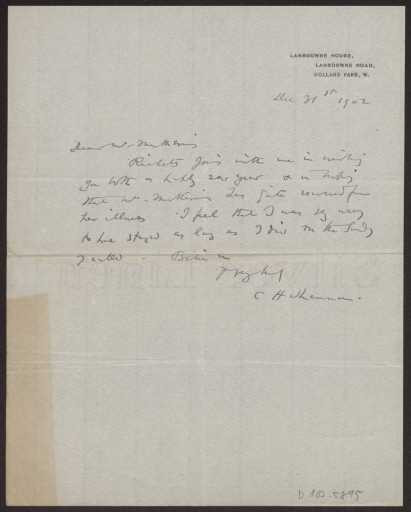 LANSDOWNE HOUSE,
LANSDOWNE ROAD,
HOLLAND PARK, W.
Dec 31st 1902
Dear Mr
Ricketts joins with me in wishing
you both a happy new year & in hoping
that Mrs. has quite recovered from
her illness. I feel that I was very wrong
to have stayed as long as I did on the Sunday
I called. Believe me
C H Shannon.
D 100.5895